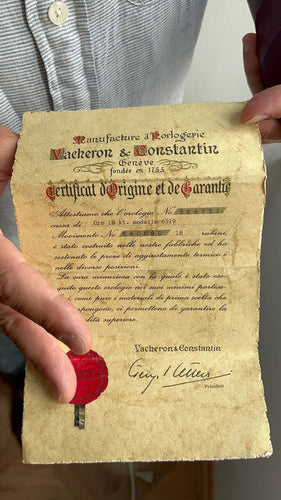 Manufacture d'Horlogerie
Vacheron & Constantin
Genève
fondée en 1785
Certificat d'Origine et de Garantie
Attestiamo che l'orologio No
cassa di Oro 18 kt. modello 6019
Movimento No 18 rubini
è stato costruito nelle nostre fabbriche ed ha
sostenuto le prove di aggiustamento termico e
nelle diverse posizioni.
La cura minuziosa con la quale è stato ese-
guito questo orologio nei suoi minimi partico-
come pure i materiali di prima scelta che
compongono, ci permettono di garantire la
superiore.
Vacheron & Constantin
Président